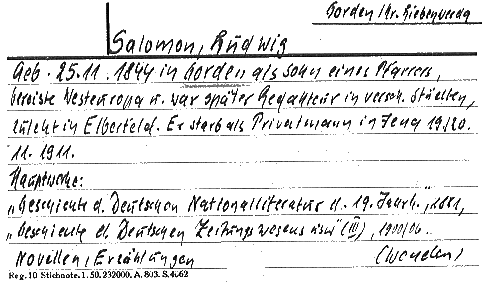 Gorden Kr. Liebenwerda
Salomon, Ludwig
Geb. 25.11.1844 in Gorden als Sohn eines Pfarrers,
bereiste Westeuropa u. war später Redakteur in versch. Städten,
zuletzt in Elberfeld. Er starb als Privatmann in Jena 19./20.
11.1911.
Hauptwerke:
„Geschichte d. Deutschen Nationalliteratur d. 19. Jahrh.", 1881,
„Geschichte d. Deutschen Zeitungswesens" (III), 1900/06
Novellen, Erzählungen
Reg. 10 Stichnote. 1. 50. 232000. A. 803. S. 4662